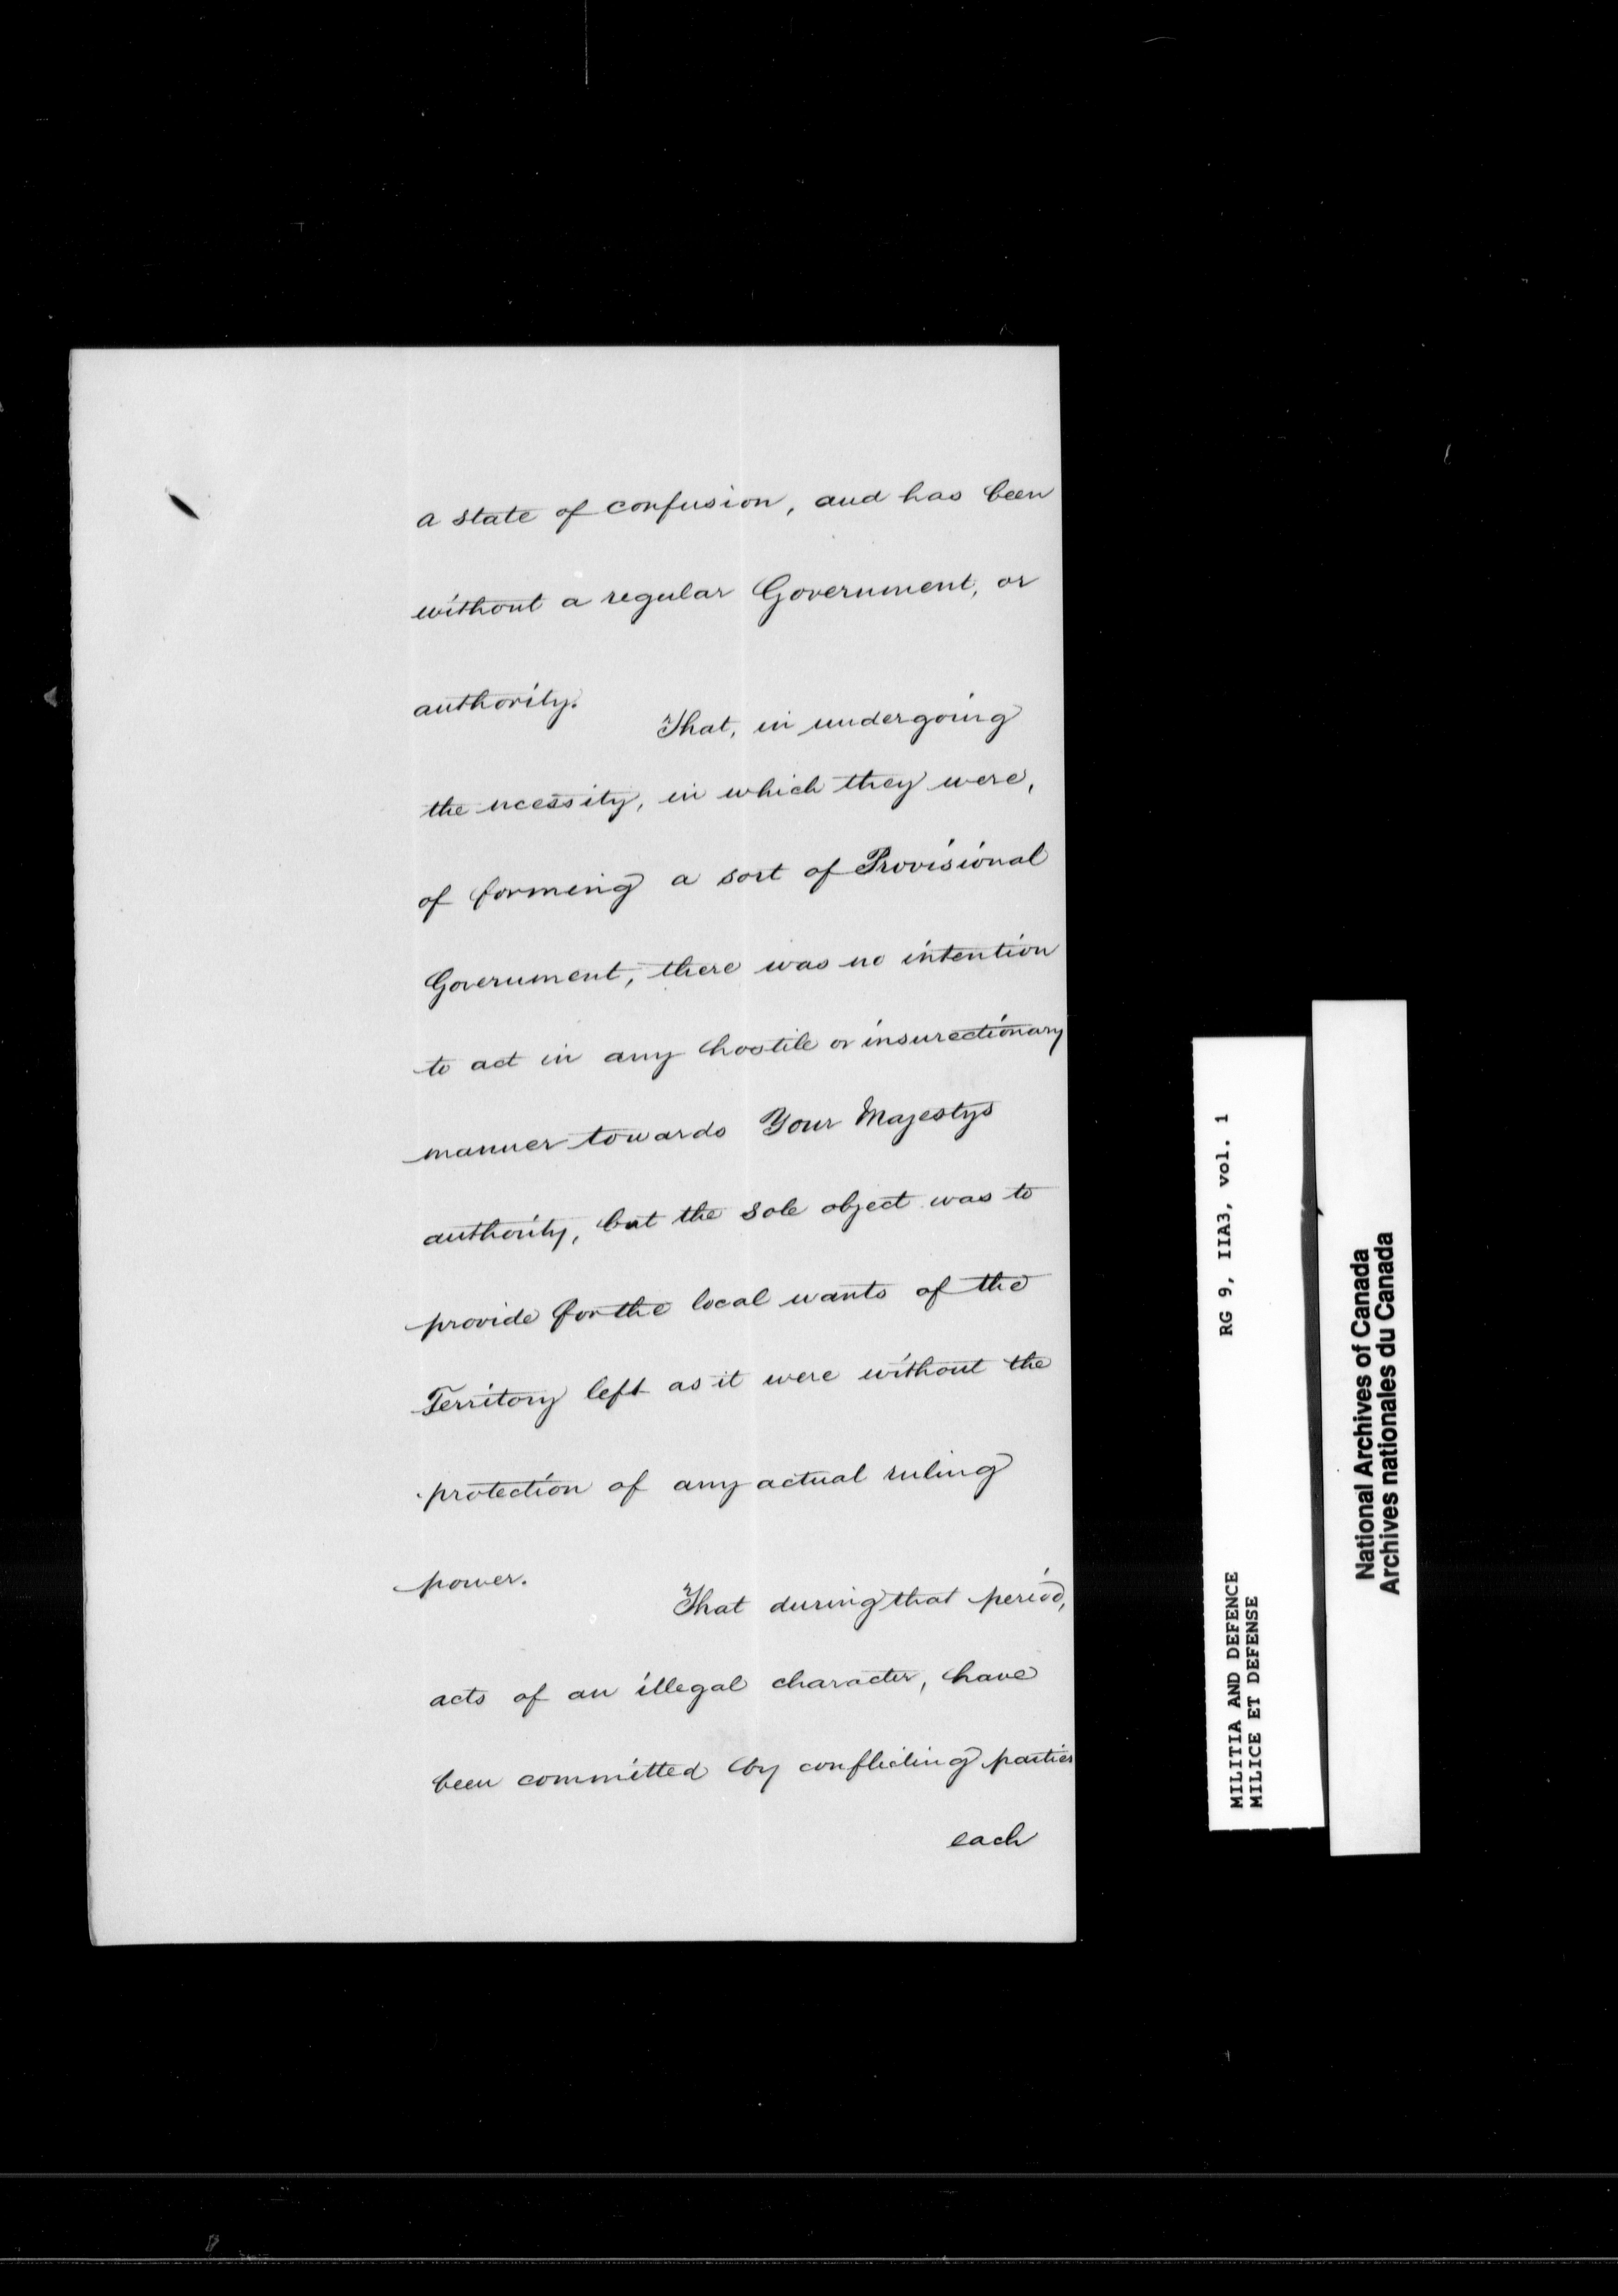 a state of confusion, and has been
without a regular Government, or
authority.
That, in undergoing
the ncessity, in which they were,
of forming a sort of Provisional
Government, there was no intention
to act in any hostile or insurectionary
manner towards Your Majestys
authority, but the sole object was to
provide for the local wants of the
Territory left as it were without the
protection of any actual ruling
power.
That during that period,
acts of an illegal character, have
been committed by conflicting parties
each
MILITIA AND DEFENCE RG 9, IIA3, vol. 1
MILICE ET DEFENSE
National Archives of Canada
Archives nationales du Canada